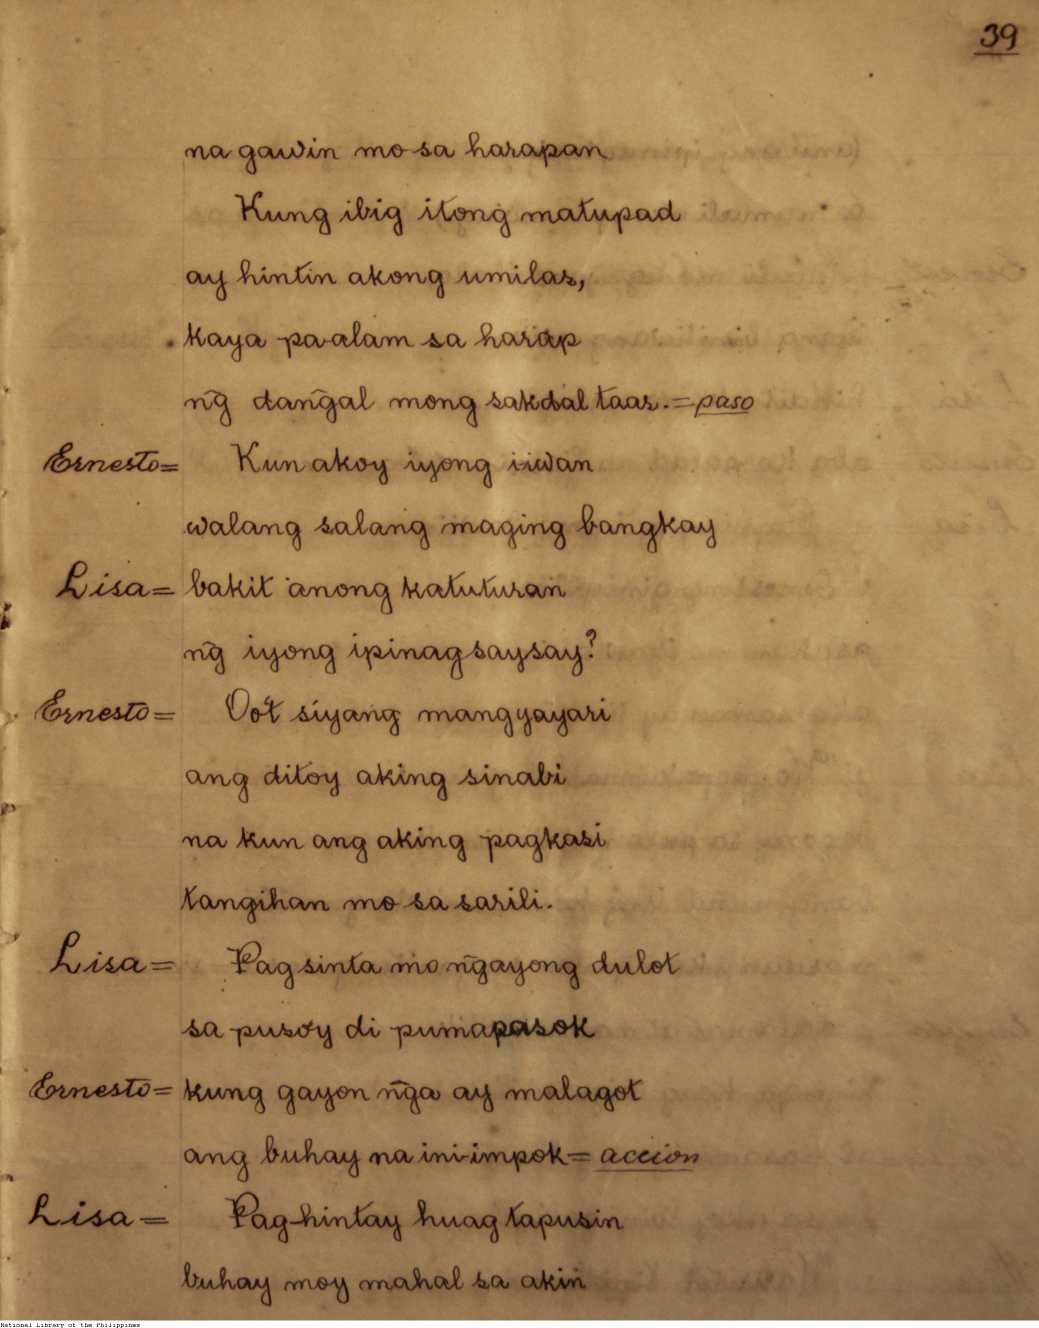 39
na gawin mo sa harapan
Kung ibig itong matupad
ay hintin akong umilas,
kaya pa-alam sa harap
ng̃ dang̃al mong sakdal taas.=paso
Ernesto= Kun akoy iyong iiwan
walang salang maging bangkay
Lisa= bakit anong katuturan
ng̃ iyong ipinagsaysay?
Ernesto= Oo't siyang mangyayari
ang ditoy aking sinabi
na kun ang aking pagkasi
tangihan mo sa sarili.
Lisa= Pagsinta mo ng̃ayong dulot
sa pusoy di pumapasok
Ernesto= kung gayon ng̃a ay malagot
ang buhay na ini-impok= accion
Lisa= Pag-hintay huag tapusin
buhay moy mahal sa akin
National Library of the Philippines